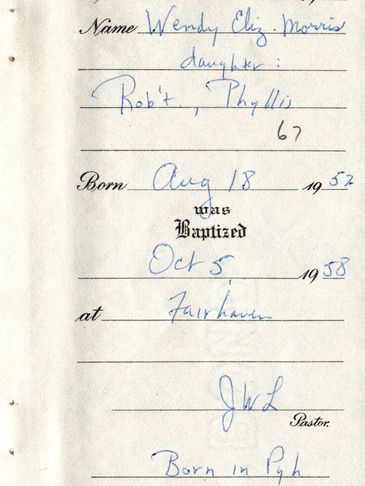 Name Wendy Eliz. Morris
daughter :
Rob't., Phyllis
67
Born Aug 18 1952
was
Baptized
Oct 5, 1958
at Fairhaven
JWL
Pastor.
Born in Pgh